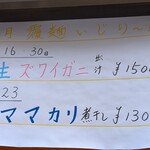 月 麺
16 30日
生ズワイガニ出汁 ¥150
23
ママカリ煮干し ¥130